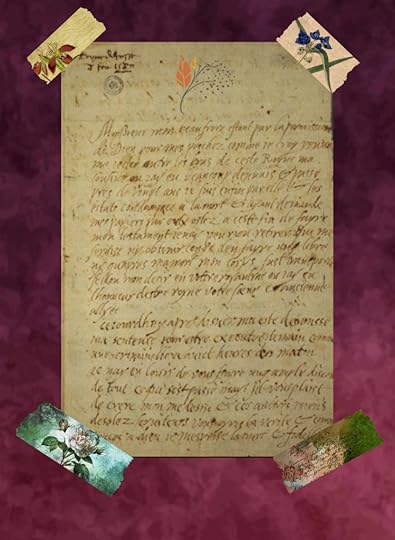 Monssieur mon beau frere estant par la permission
de Dieu pour mes peschez comme ie croy venue
me iecter entre les bras de ceste Royne ma
cousine ou iay eu beaucoup dennuis & passe
pres de vingt ans ie suis enfin par elle & ses
estats condampnee a la mort & ayant demande
mes papiers par eulx ostez a ceste fin de fayre
mon testament ie nay peu rien retirer qui me
seruist ni obtenir conge den fayre ung libre
ni quapres ma mort mon corps fust transporte
sellon mon desir en votre royaulme ou iay eu
lhonneur destre royne votre soeur & ancienne
allyee
ceiourdhuy apres disner ma este desnonsse
ma sentence pour estre executee demain comme
une criminelle a huict heures du matin
ie nay eu loisir de vous fayre ung ample discours
de tout ce qui sest passe mays sil vous plaist
de crere mon medesin & ces aultres miens
desolez seruiteurs vous oyres la verite & comme
graces a dieu ie mesprise la mort & fidel